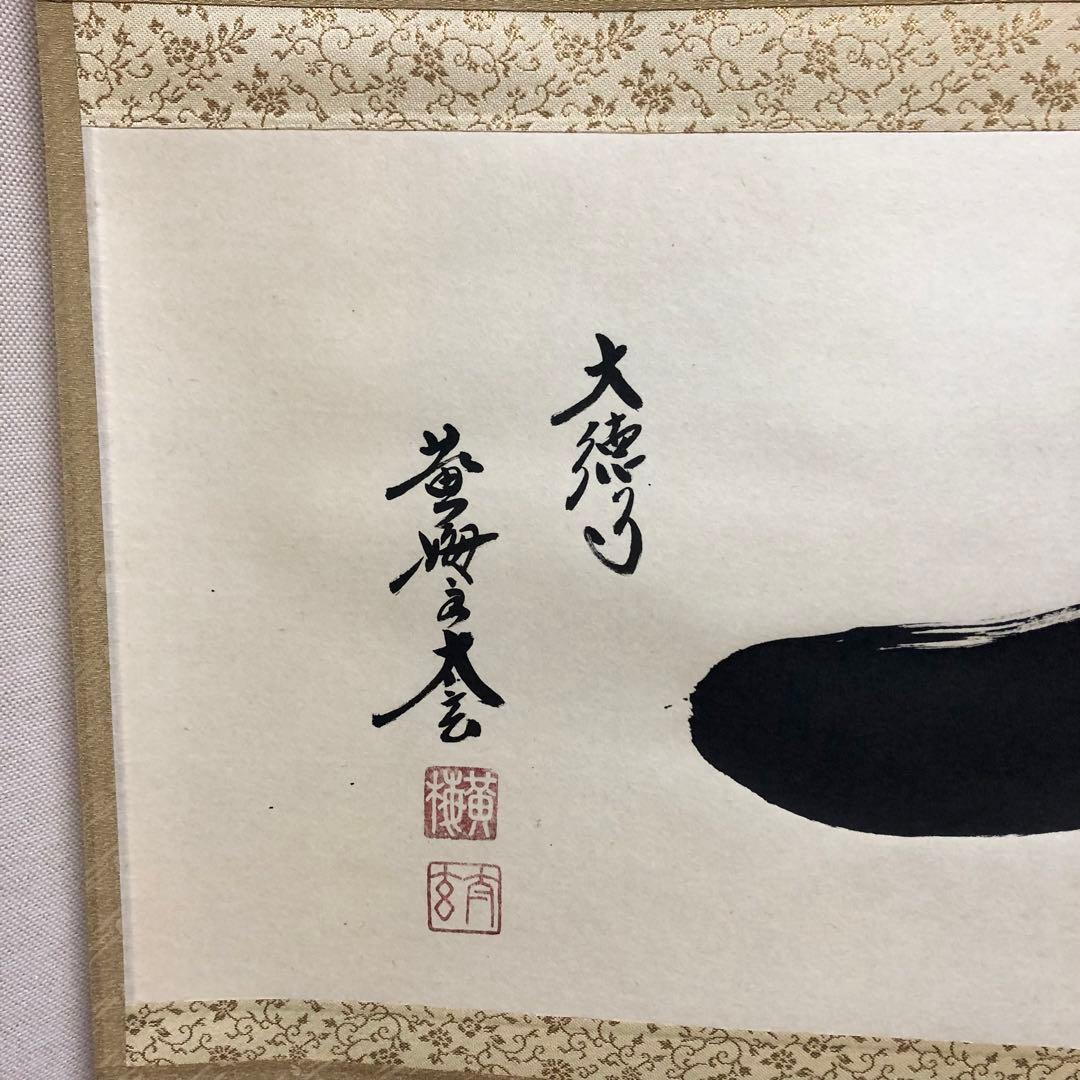 大徳寺
黄梅主太玄
黄梅
太玄